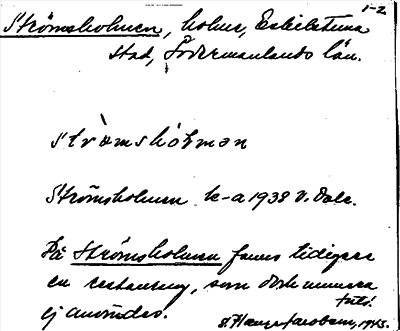 1-2
Strömsholmen, holme, Eskilstuna
stad, Södermanlands län.
strömshòlmən
Strömsholmen k-a 1938 V. Dale.
På Strömsholmen fanns tidigare
en restaurang, som dock numera
ej användes.
1943.